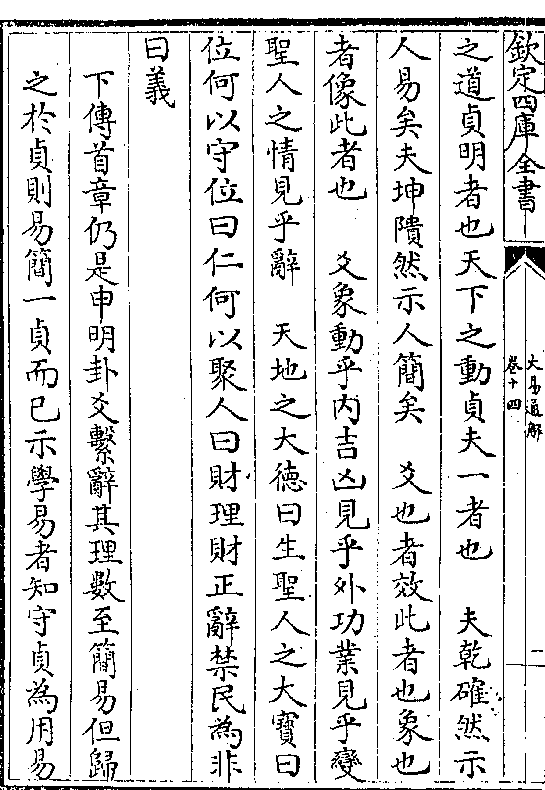 欽定四庫全書
大易通解
卷十四
二
之道貞明者也天下之動貞夫一者也　夫乾確然示
人易矣夫坤隤然示人簡矣　爻也者效此者也象也
者像此者也　爻象動乎內吉凶見乎外功業見乎變
聖人之情見乎辭　天地之大德曰生聖人之大寶曰
位何以守位曰仁何以聚人曰財理財正辭禁民為非
曰義
下傳首章仍是申明卦爻繫辭其理數至簡易但歸
之於貞則易簡一貞而已示學易者知守貞為用易